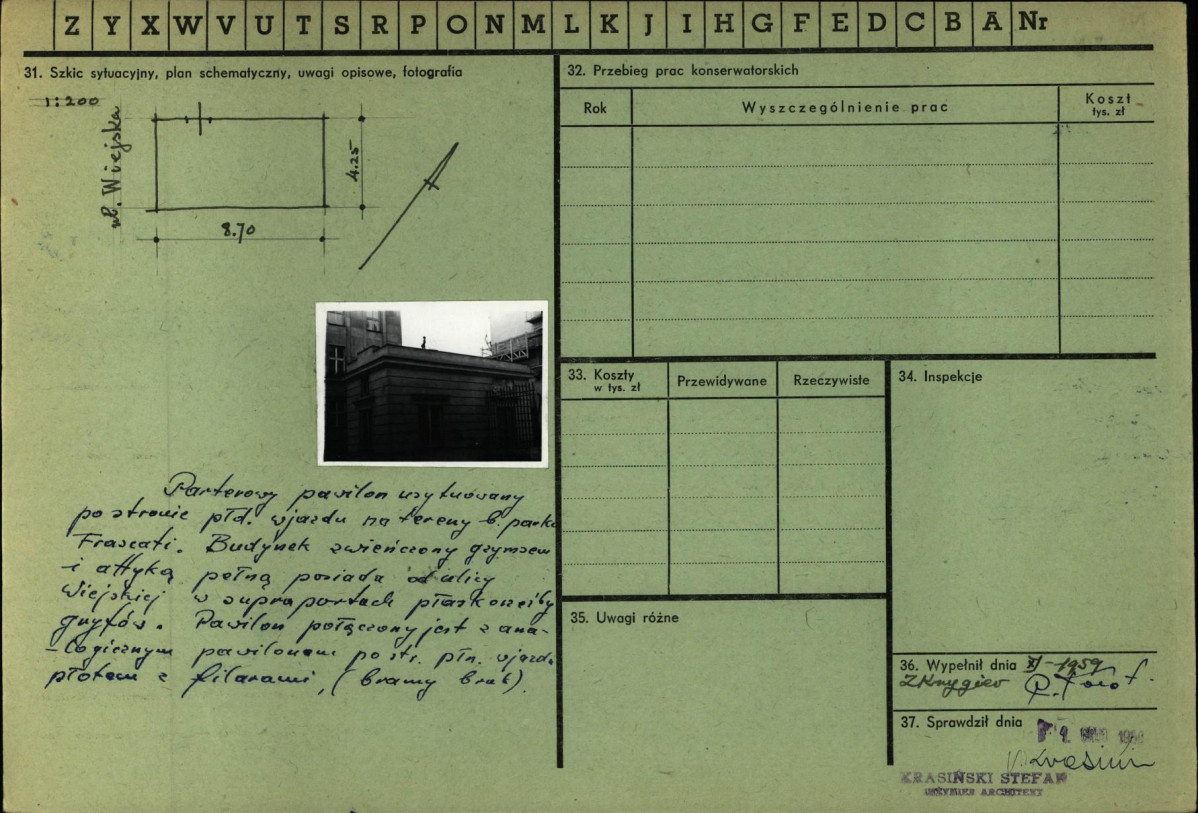 Z Y X W V U T S R P O N M L K J I H G F E D C B A Nr
31. Szkic sytuacyjny, plan schematyczny, uwagi opisowe, fotografia
1:200
ul. Wiejska
4.25
8.70
Parterowy pawilon usytuowany
po stronie płd. wjazdu na tereny b. parku
Frascati. Budynek zwieńczony gzymsem
i attyką pełną posiada od ulicy
Wiejskiej w supraportach płaskorzeźby
gryfów. Pawilon połączony jest z ana-
-logicznym pawilonem po str. płn. wjazdu
płotem z filarami, (bramy brak).
32. Przebieg prac konserwatorskich
Rok
Wyszczególnienie prac
Koszt
tys. zł
33. Koszty
w tys. zł
Przewidywane
Rzeczywiste
34. Inspekcje
35. Uwagi różne
36. Wypełnił dnia XI-1959
37. Sprawdził dnia
KRASIŃSKI STEFAN
INŻYNIER ARCHITEKT